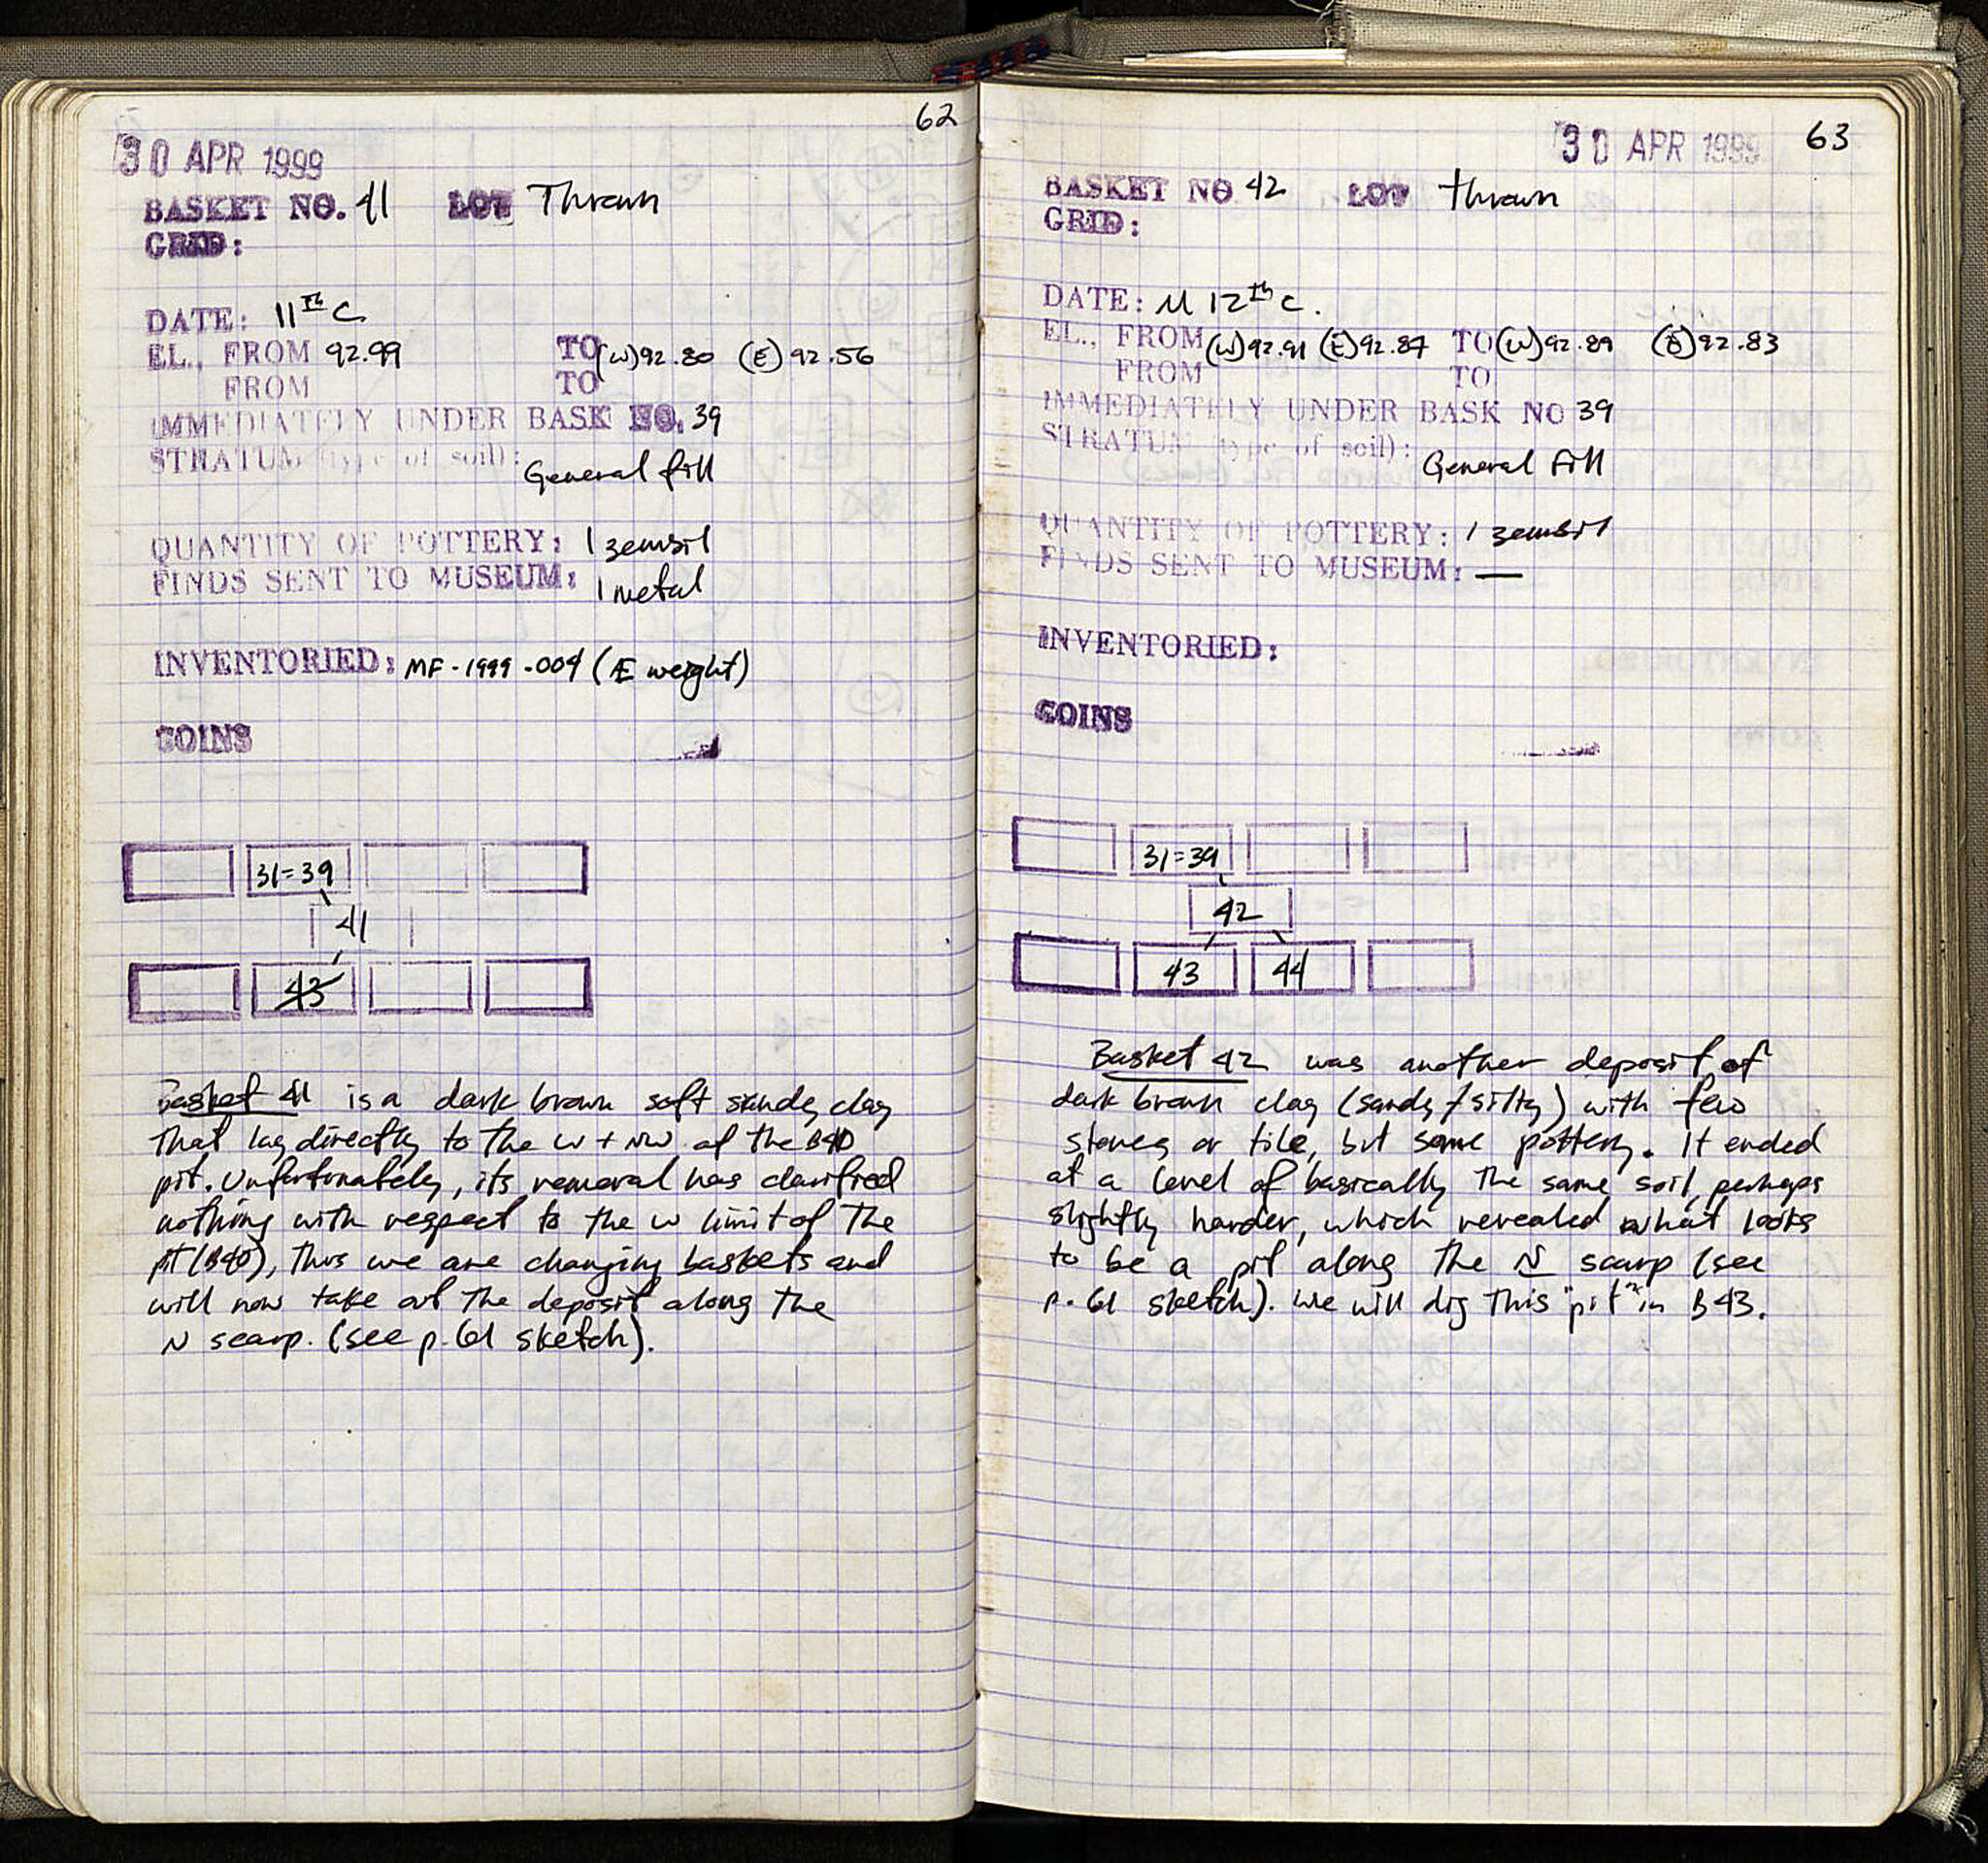 62
30 APR 1999
BASKET NO. 41 LOT Thrown
GRID:
DATE: 11th C
EL., FROM 92.99 TO (W) 92.80 (E) 92.56
FROM TO
IMMEDIATELY UNDER BASK NO. 39
STRATUM (type of soil): General fill
QUANTITY OF POTTERY: 1 zembil
FINDS SENT TO MUSEUM: 1 metal
INVENTORIED: MF-1999-004 (Æ weight)
COINS
31=39
41
43
Basket 41 is a dark brown soft sandy clay
that lay directly to the W + NW of the B40
pit. Unfortunately, its removal has clarified
nothing with respect to the W limit of the
pit (B40), thus we are changing baskets and
will now take out the deposit along the
N scarp. (see p. 61 sketch).
30 APR 1999 63
BASKET NO 42 LOT thrown
GRID:
DATE: M 12th C.
EL., FROM (W) 92.91 (E) 92.87 TO (W) 92.89 (E) 92.83
FROM TO
IMMEDIATELY UNDER BASK NO 39
STRATUM (type of soil): General fill
QUANTITY OF POTTERY: 1 zembil
FINDS SENT TO MUSEUM: —
INVENTORIED:
COINS
31=39
42
43 44
Basket 42 was another deposit of
dark brown clay (sandy/silty) with few
stones or tile, but some pottery. It ended
at a level of basically the same soil, perhaps
slightly harder, which revealed what looks
to be a pit along the N scarp (see
p. 61 sketch). We will dig this "pit" in B43.